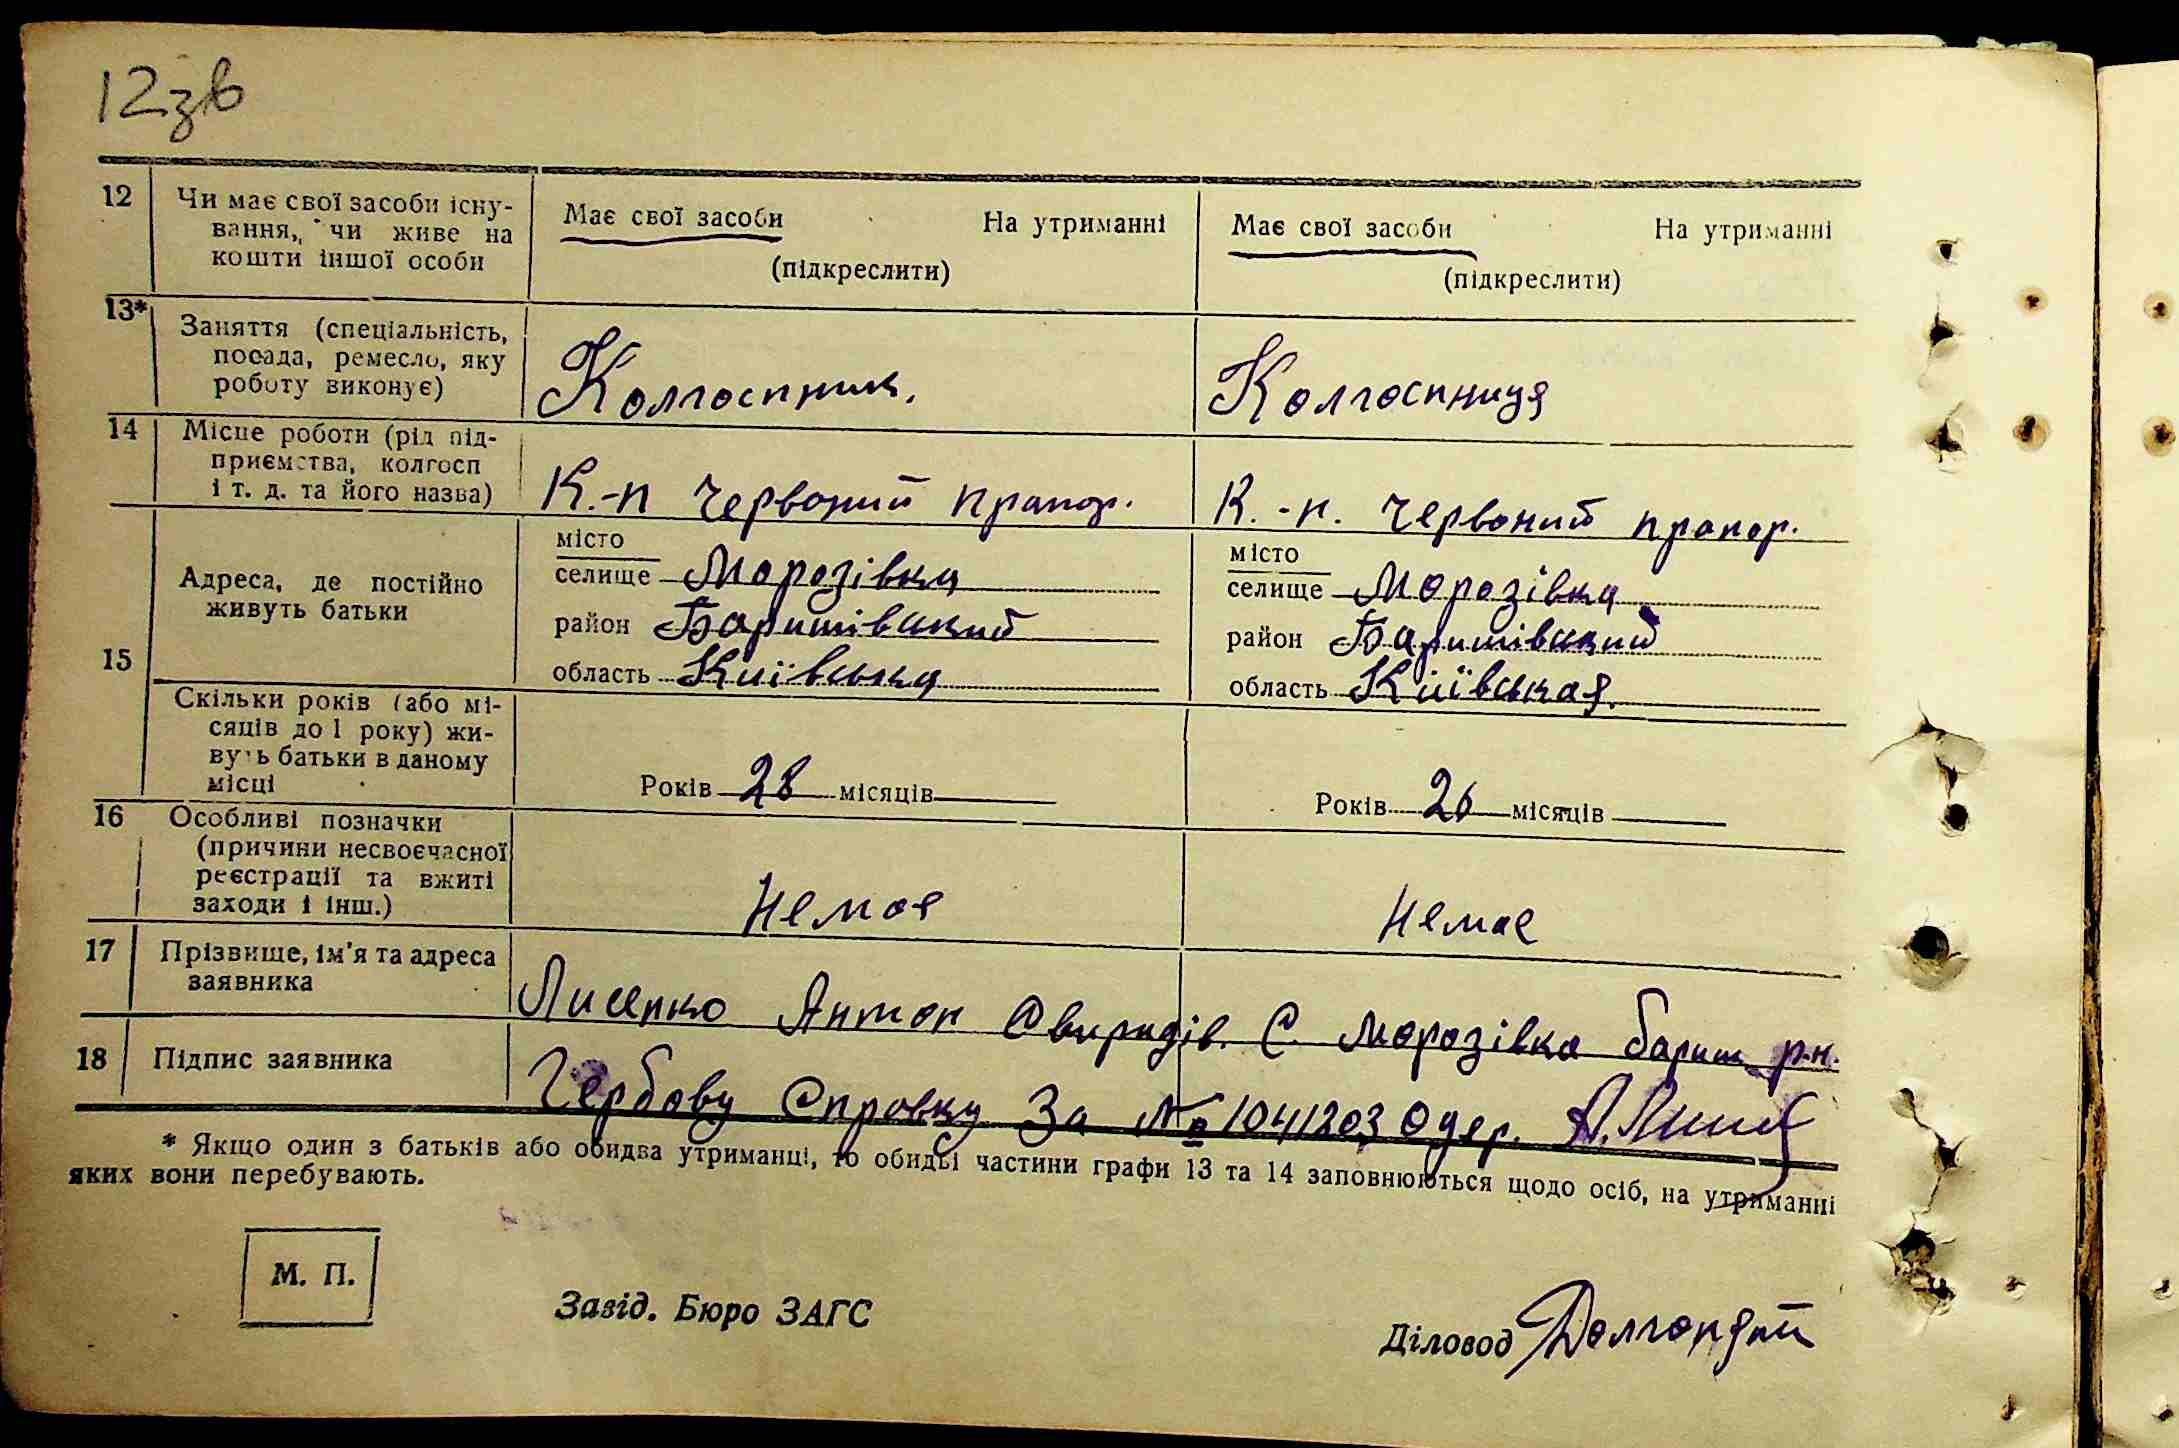 12зв
12 Чи має свої засоби існу-
вання, чи живе на
кошти іншої особи
Має свої засоби На утриманні
(підкреслити)
Має свої засоби На утриманні
(підкреслити)
13* Заняття (спеціальність,
посада, ремесло, яку
роботу виконує)
Колгоспник.
Колгоспниця
14 Місце роботи (рід під-
приємства, колгосп
і т. д. та його назва)
К.-п Червоний прапор.
К.-п. Червоний прапор.
15 Адреса, де постійно
живуть батьки
місто
селище Морозівка
район Баришівський
область Київська
місто
селище Морозівка
район Баришівський
область Київськая.
Скільки років (або мі-
сяців до 1 року) жи-
вуть батьки в даному
місці
Років 28 місяців
Років 26 місяців
16 Особливі позначки
(причини несвоєчасної
реєстрації та вжиті
заходи і інш.)
Немає
Немає
17 Прізвище, ім'я та адреса
заявника
Лисенко Антон Свиридів. С. Морозівка бариш р-н.
18 Підпис заявника
Гербову Справку За № 1041203 Одер.
* Якщо один з батьків або обидва утриманці, то обидві частини графи 13 та 14 заповнюються щодо осіб, на утриманні
яких вони перебувають.
М. П.
Завід. Бюро ЗАГС
Діловод